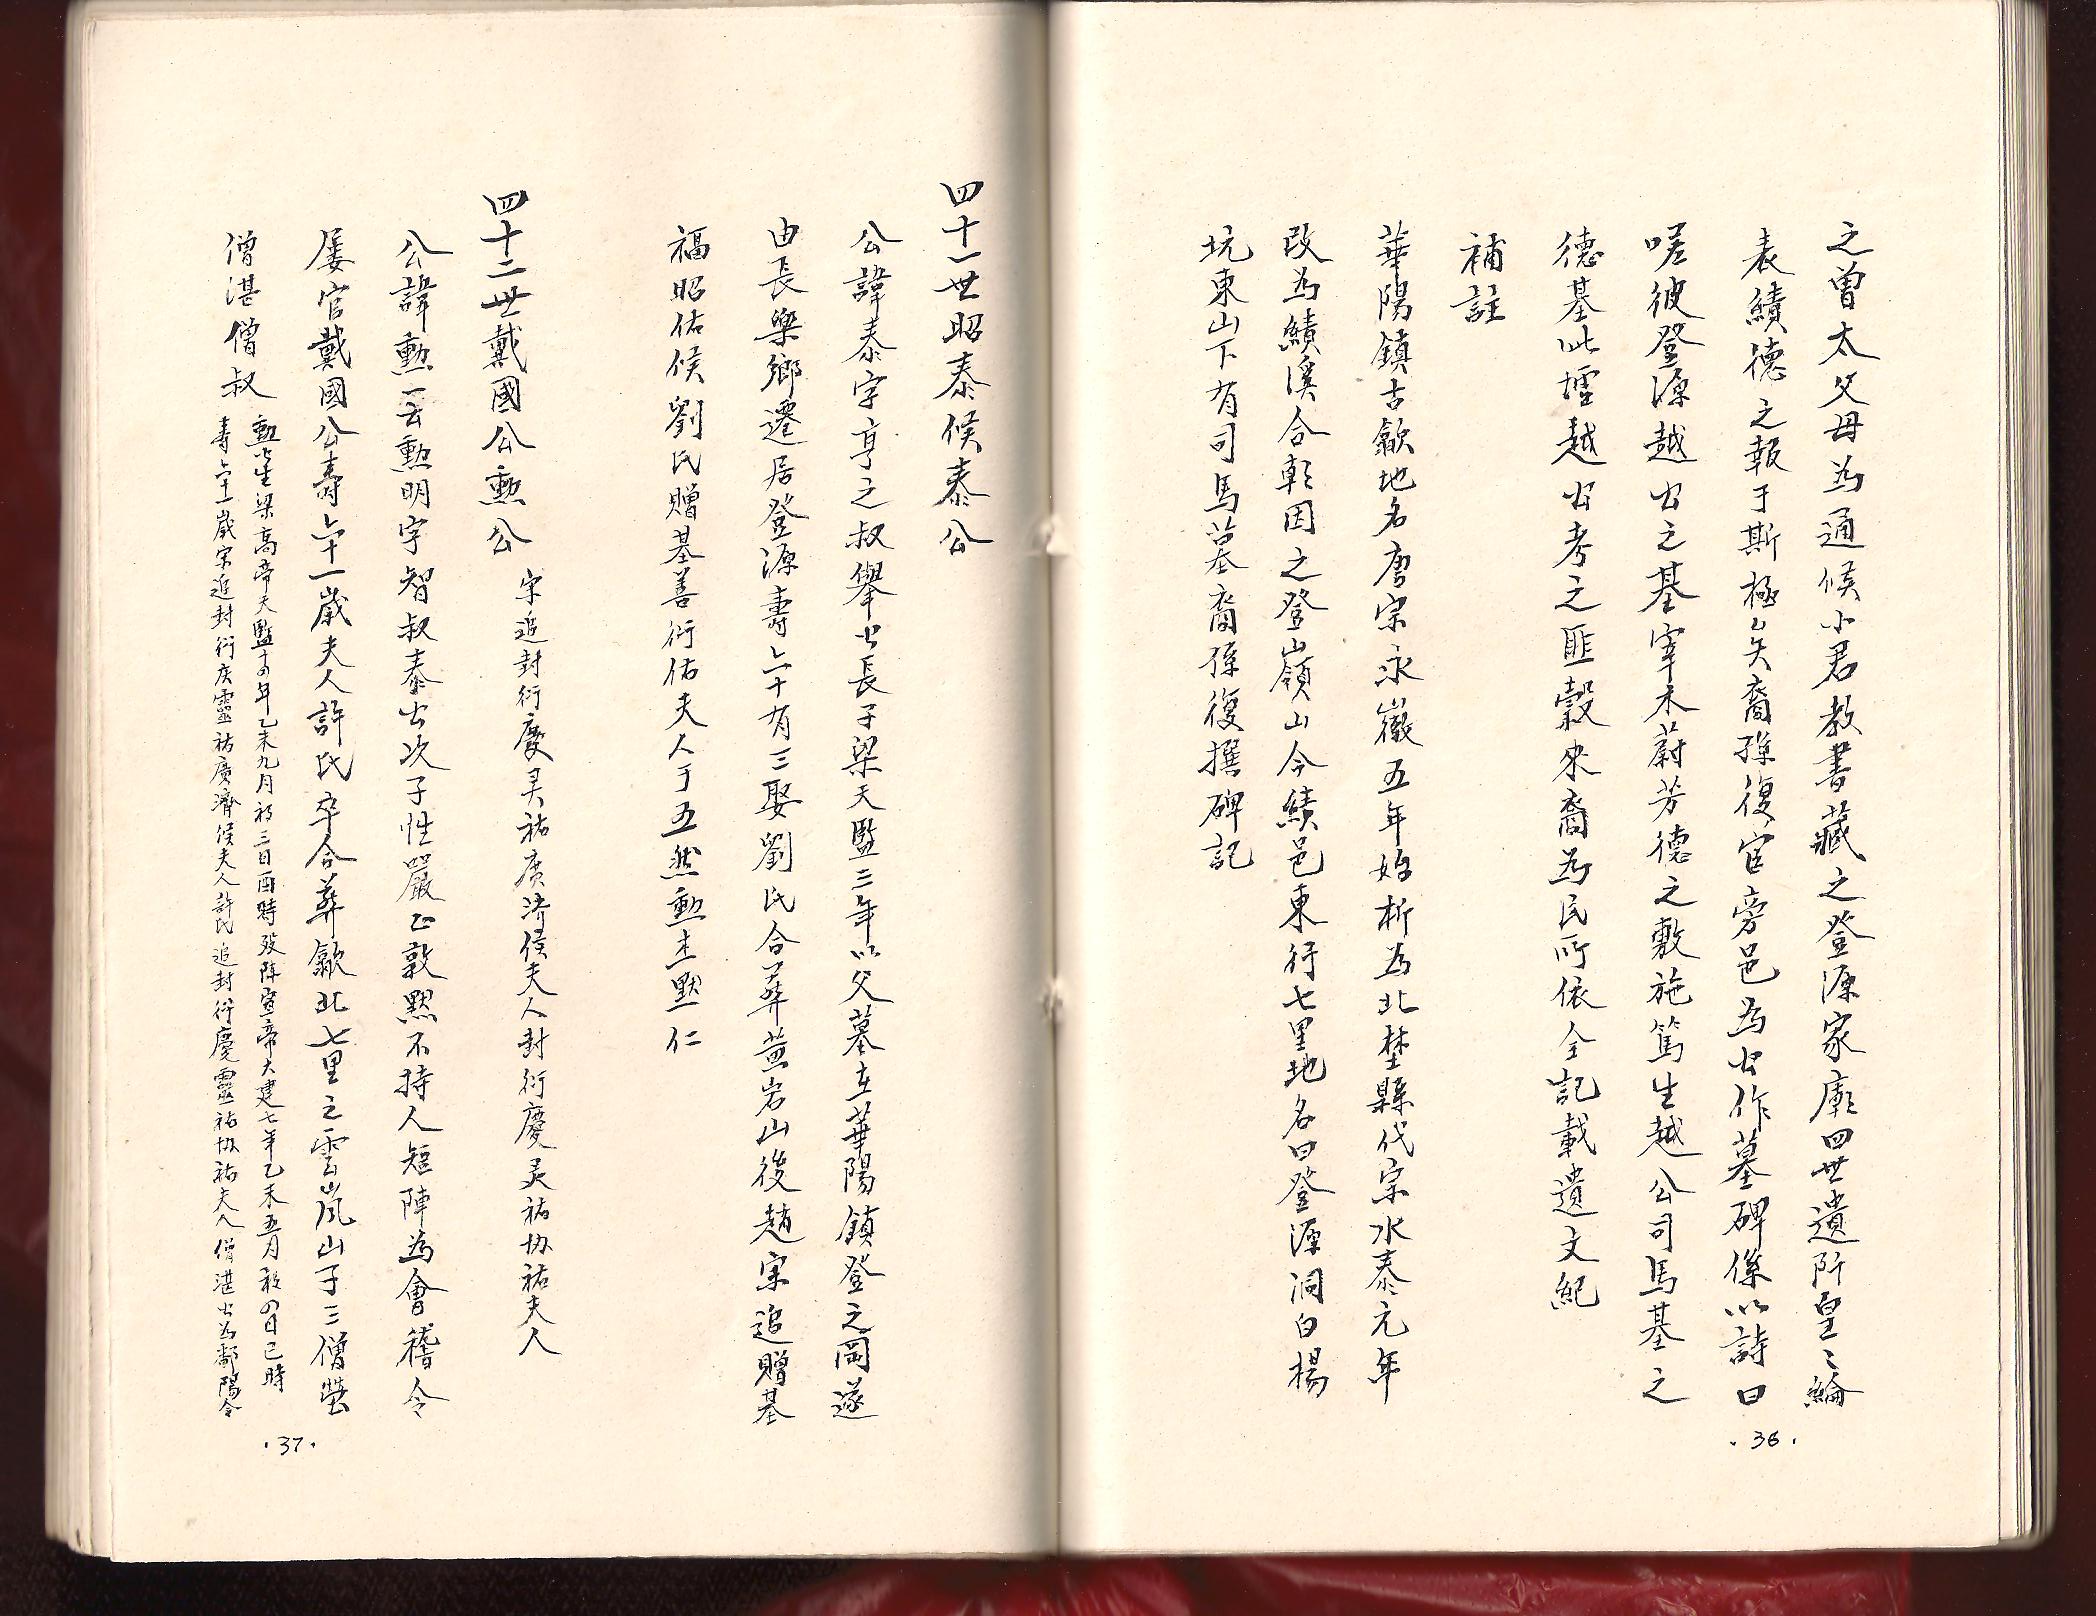 之曾太父母為通候小君教書藏之登源家廟四世遺阡皇〻綸
表績德之報于斯極矣裔孫復官旁邑為公作墓碑係以詩曰
嗟彼登源越公之基宰木蔚芳德之敷施篤生越公司馬基之
德基此壇越公考之匪穀來裔為民所依全記載遺文紀
補註
華陽鎮古歙地名唐宗永徽五年始析為北埜縣代宗永泰元年
改為績溪合乾因之登山嶺山今績邑東行七里地名曰登源洞白楊
坑東山下有司馬墓裔孫復撰碑記
·36·
四十一世昭泰候泰公
公諱泰字亨之叔舉公長子梁天監二年以父墓在華陽鎮登之岡遂
由長樂鄉遷居登源壽六十有三娶劉氏合葬黃岩山後趙宋追贈基
福昭佑候劉氏贈基善衍佑夫人子五然勳杰默仁
四十二世戴國公勳公
宋追封衍慶灵祐廣济侯夫人封衍慶灵祐协祐夫人
公諱勳一云勳明字智叔泰公次子性嚴正敦默不持人短陣為會稽令
屡官戴國公壽六十一歲夫人許氏卒合葬歙北七里之雲岚山子三僧瑩
僧湛僧叔
勳公生梁高帝天監十四年乙未九月初三日酉時歿陈宣帝大建七年乙未五月初四日巳時
壽六十一歲宋追封衍庆靈祐廣濟侯夫人許氏追封衍慶靈祐协祐夫人僧湛公為鄱陽令
·37·